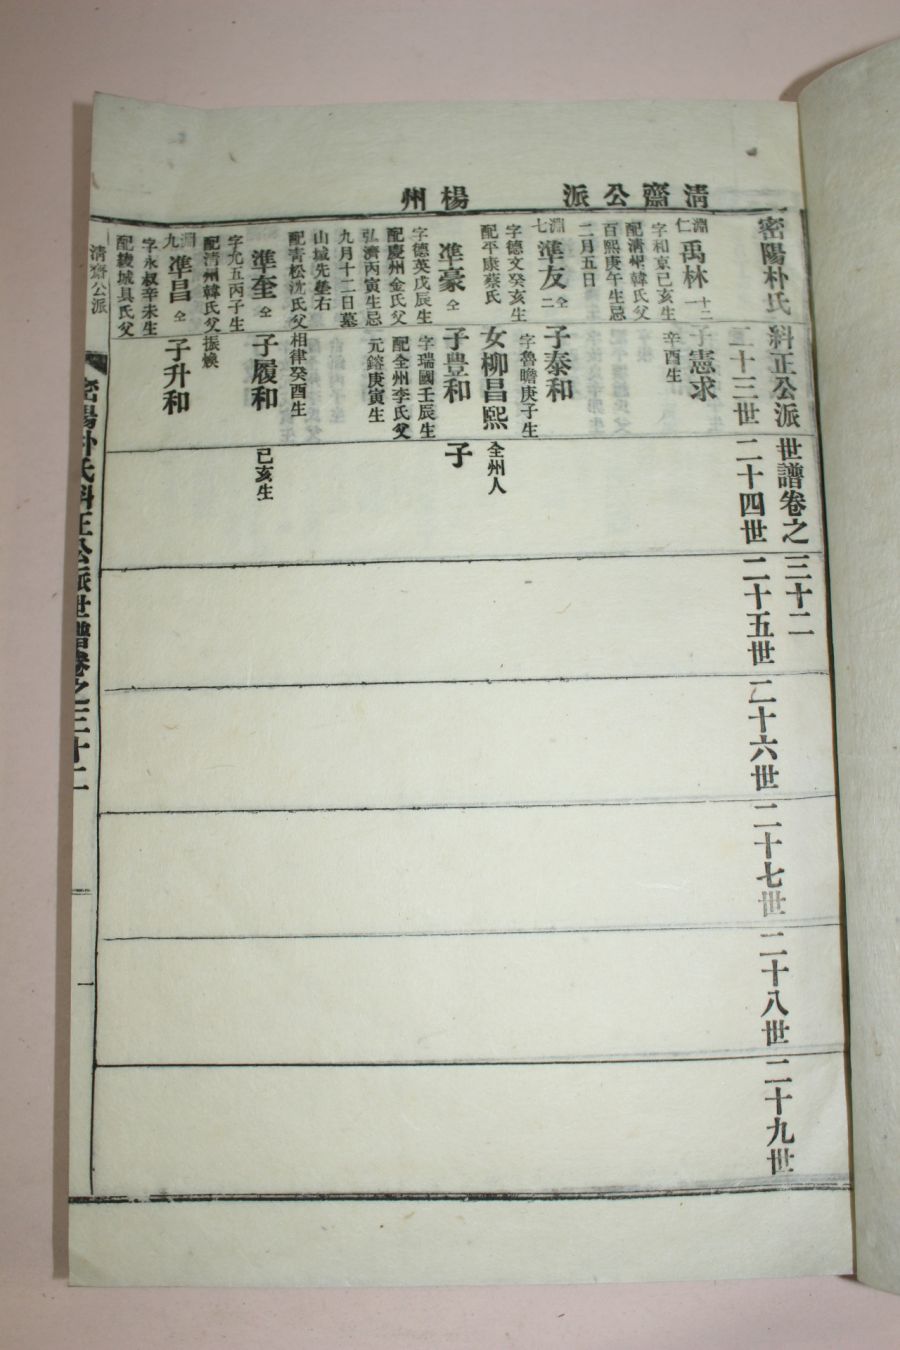 清齋公派 楊州
密陽朴氏糾正公派世譜卷之三十二
二十三世 二十四世 二十五世 二十六世 二十七世 二十八世 二十九世
淵仁 禹林 十二一
字和京己亥生
配淸州韓氏父
百熙庚午生忌
二月五日
子憲求
辛酉生
淵七 準友 仝二
字德文癸亥生
配平康蔡氏
子泰和
字魯瞻庚子生
女柳昌熙
全州人
準豪 仝
字德英戊辰生
配慶州金氏父
弘濟丙寅生忌
九月十二日墓
山城先塋右
子豊和
字瑞國壬辰生
配全州李氏父
元鎔庚寅生
子
準奎 仝
配靑松沈氏父
相律癸酉生
子履和
己亥生
字九五丙子生
配淸州韓氏父
振煥
淵九 準昌 仝
字永叔辛未生
配綾城具氏父
子升和
淸齋公派
密陽朴氏糾正公派世譜卷之三十二